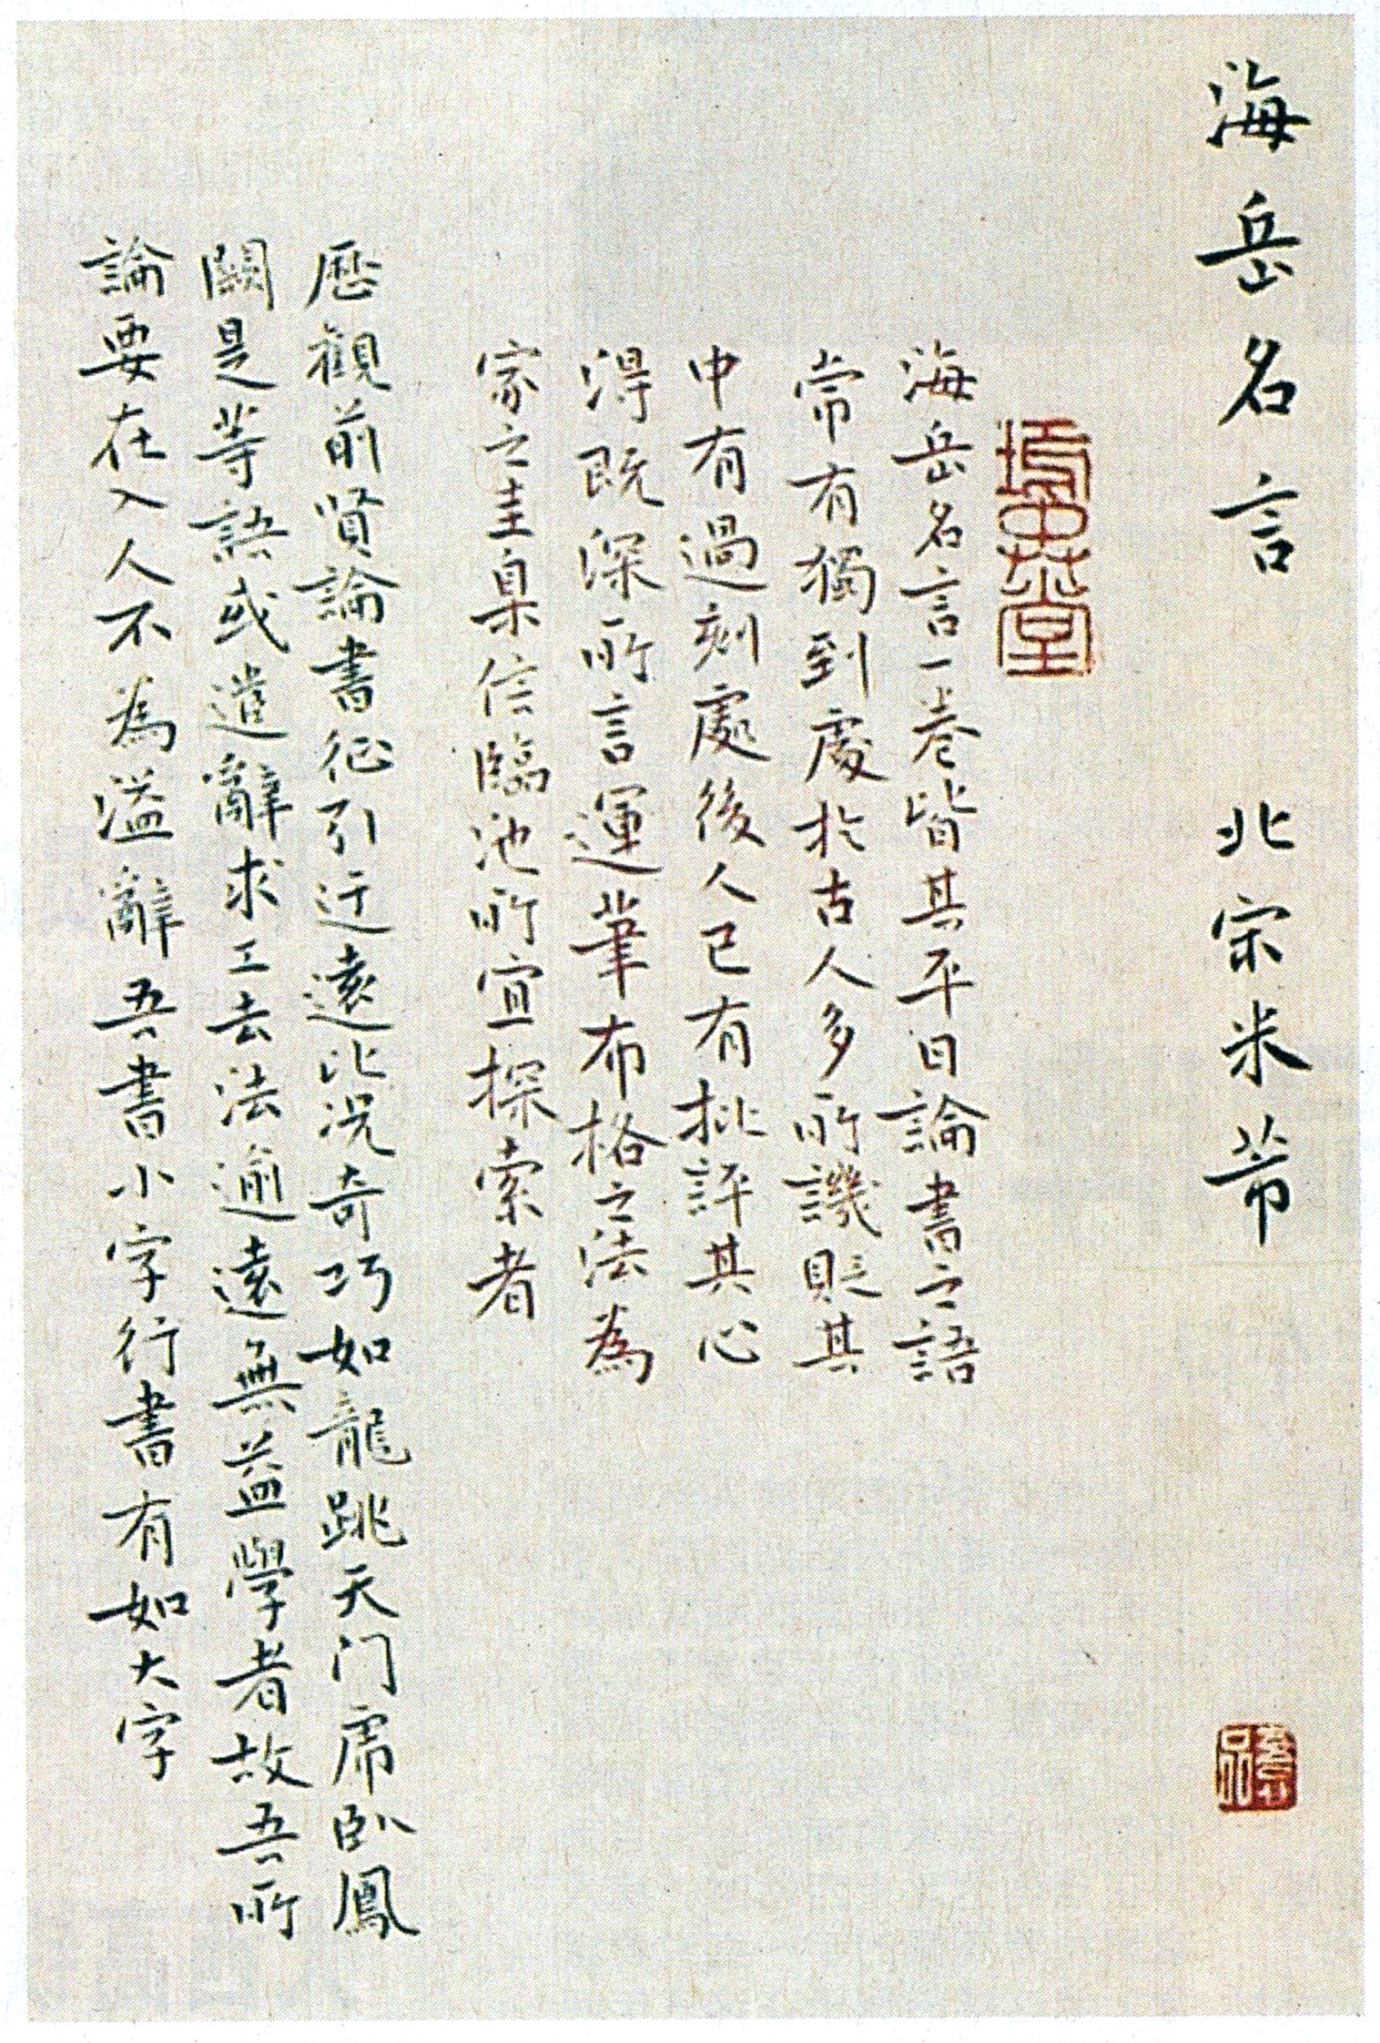 海岳名言 北宋米芾
海岳名言一卷皆其平日論書之語
常有獨到處於古人多所譏貶其
中有過刻處後人已有批評其心
得既深所言運筆布格之法為
家之圭臬信臨池所宜探索者
歷觀前賢論書征引迂遠比況奇巧如龍跳天门虎臥鳳
闕是等語或遣辭求工去法逾遠無益學者故吾所
論要在入人不為溢辭吾書小字行書有如大字